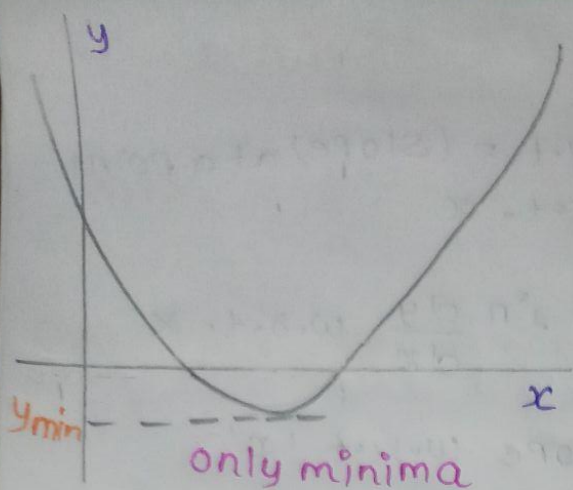 y
x
ymin
only minima